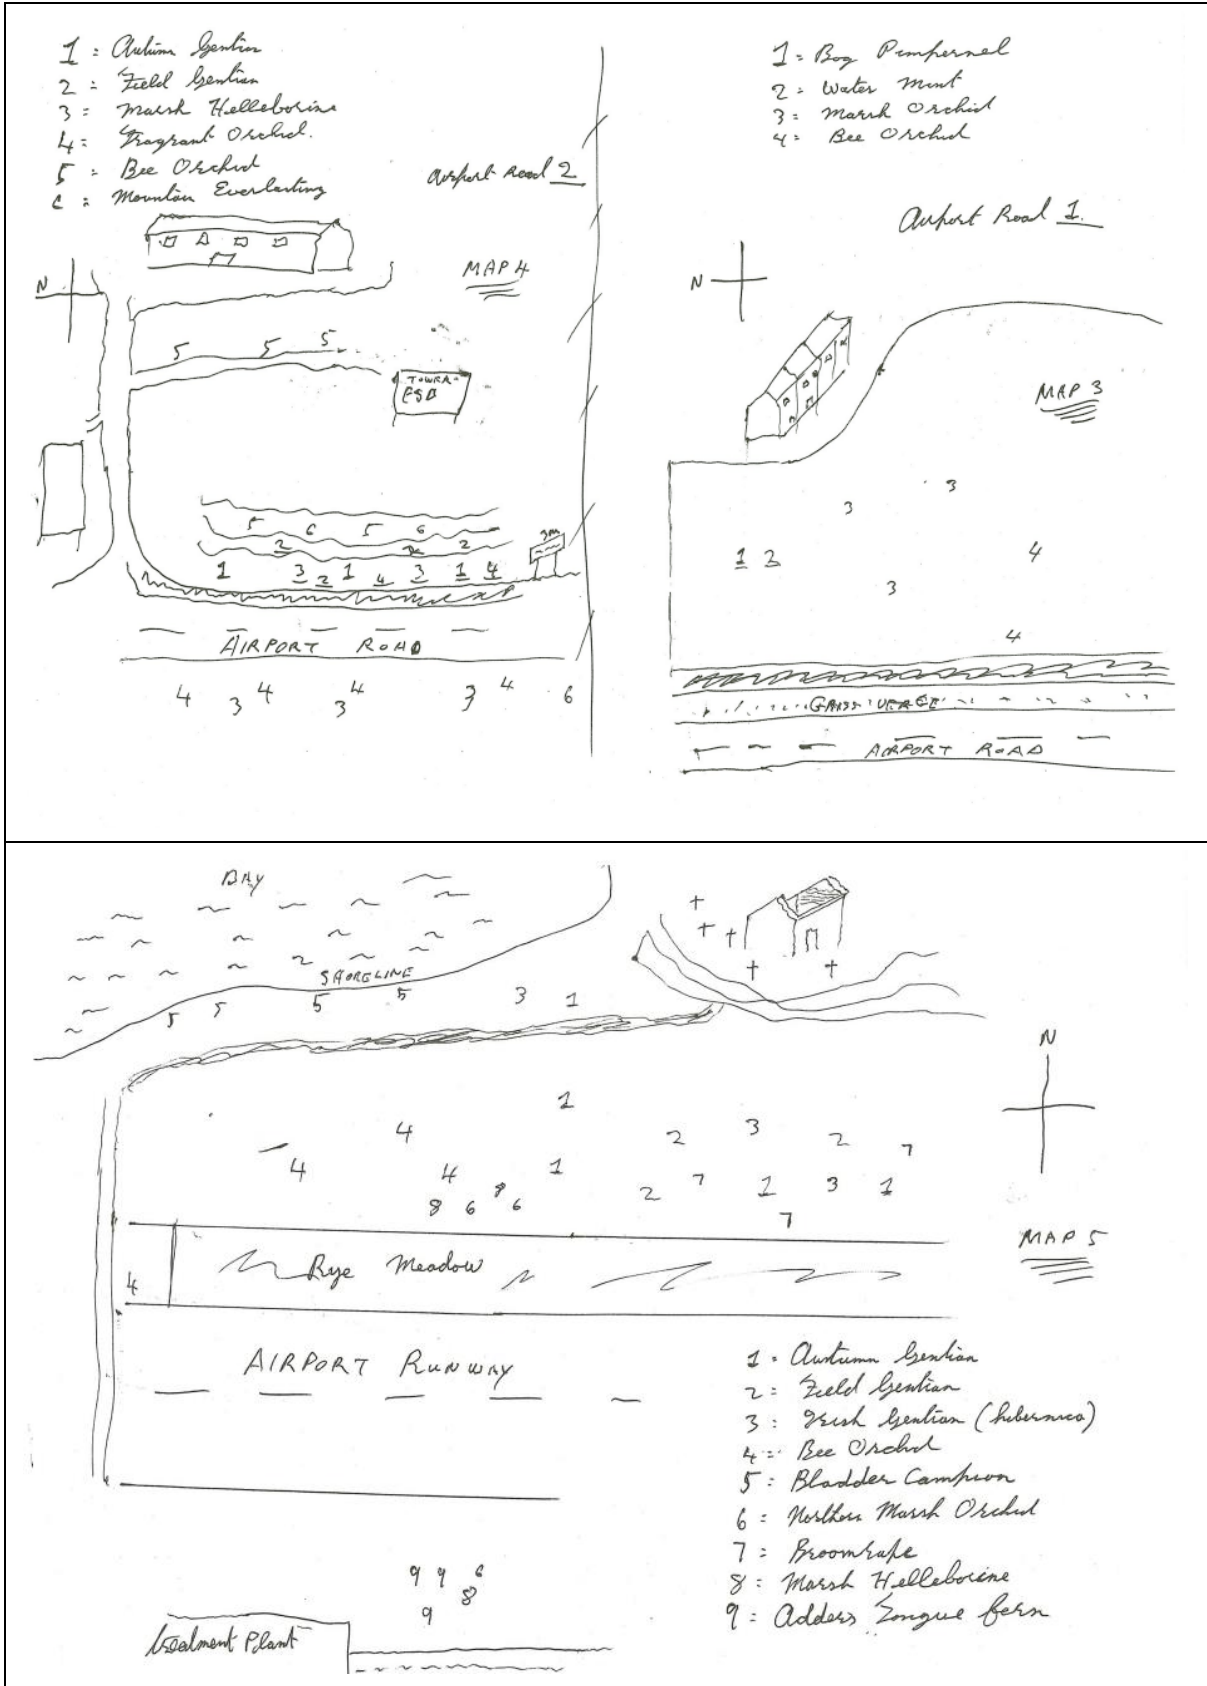 1 = Autumn Gentian
2 = Field Gentian
3 = Marsh Helleborine
4 = Fragrant Orchid.
5 = Bee Orchid
6 = Mountain Everlasting
Airport Road 2
N
MAP 4
5 5 5
ESB
5 6 5 6
2 2
1 3 2 1 4 3 1 4
AIRPORT ROAD
4 3 4 3 4 3 4 6
1 = Bog Pimpernel
2 = Water Mint
3 = Marsh Orchid
4 = Bee Orchid
Airport Road 1.
N
MAP 3
3
3
4
1
3
4
VERGE
AIRPORT ROAD
BAY
SHORELINE
5 5 5 5 3 1
N
1
4 2 3 2 7
4 4 1 2 7 1 3 1
8 6 8 6 7
Rye Meadow
4
MAP 5
AIRPORT RUNWAY
1 = Autumn Gentian
2 = Field Gentian
3 = Irish Gentian (hibernica)
4 = Bee Orchid
5 = Bladder Campion
6 = Northern Marsh Orchid
7 = Broomrape
8 = Marsh Helleborine
9 = Adders Tongue fern
9 9 6
8
9
treatment Plant